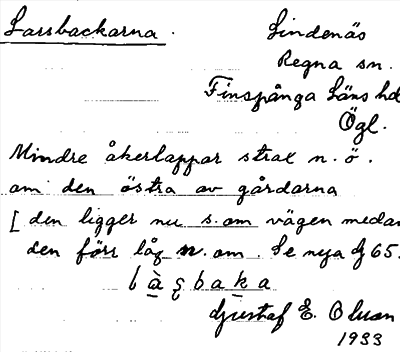 Larsbackarna. Lindenäs
Regna sn.
Finspånga Läns hd
Ögl.
Mindre åkerlappar strax n.ö.
om den östra av gårdarna
[ den ligger nu s. om vägen medan
den förr låg n. om. Se nya 65.
làsbaka
Gustaf E. Olsson
1933